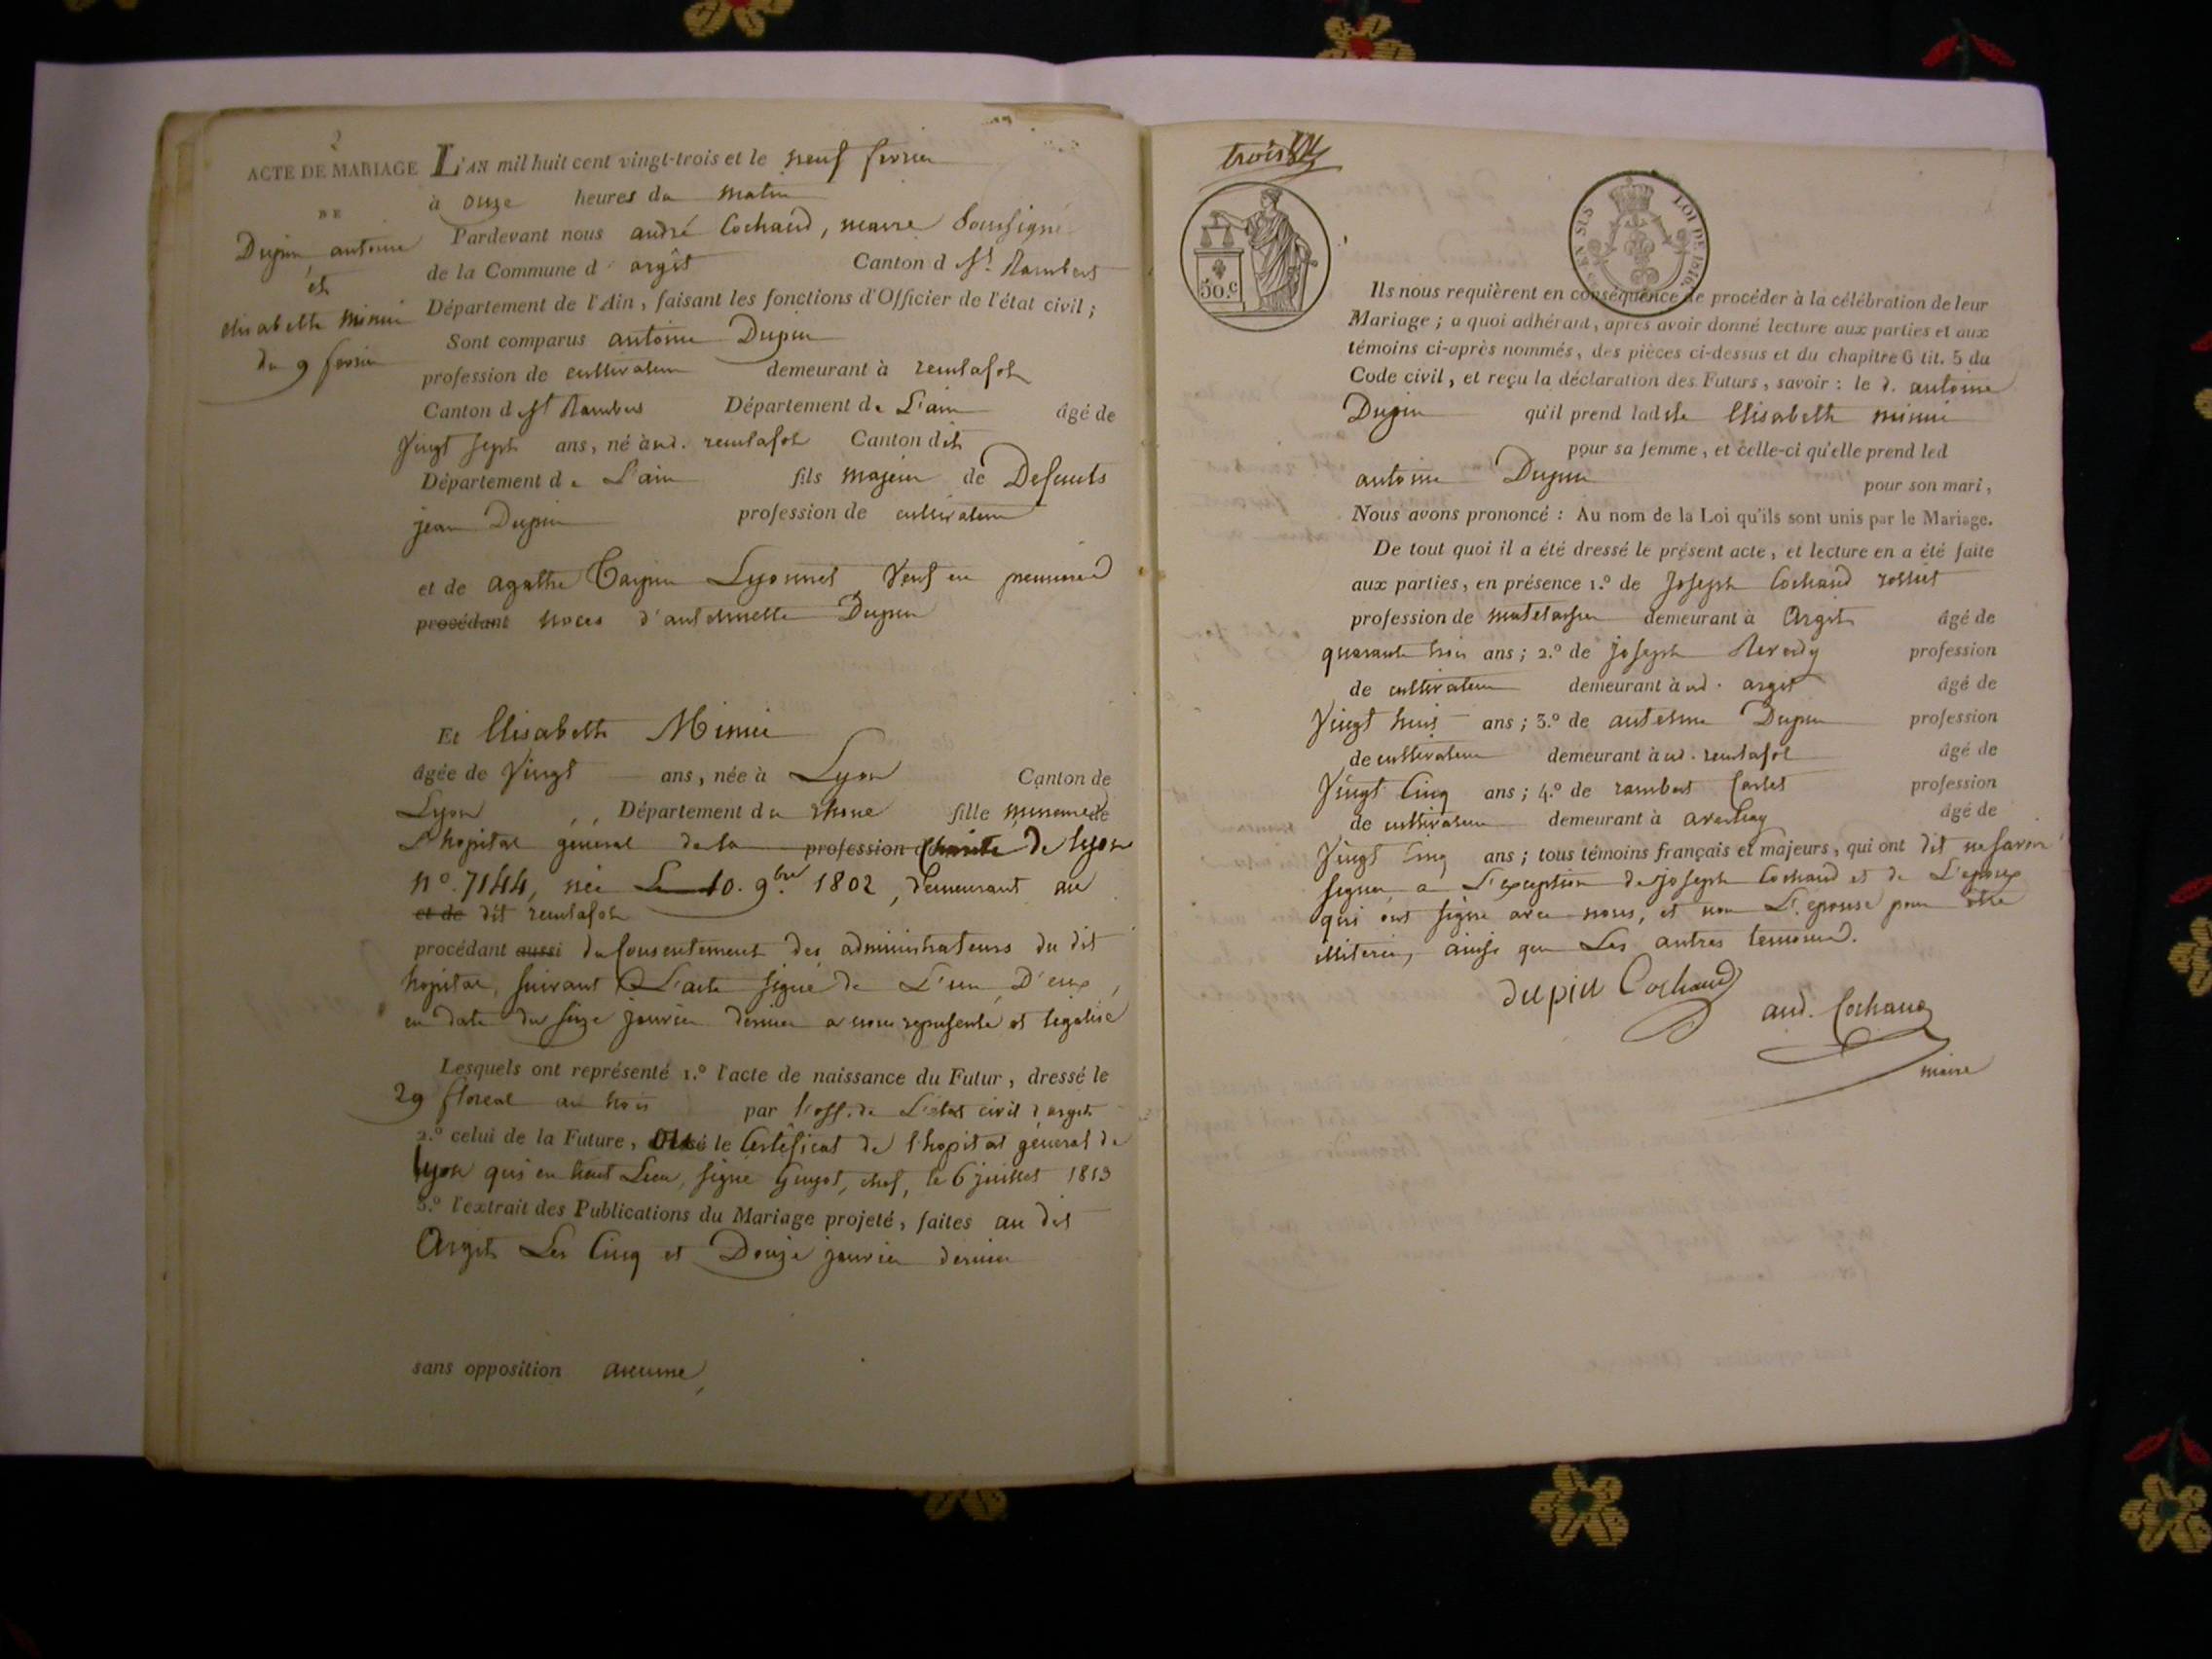 2
ACTE DE MARIAGE
DE
Dupin antoine
et
elisabeth Mimii
du 9 fevrier
L'AN mil huit cent vingt-trois et le neuf fevrier
à onze heures du matin
Pardevant nous andré Cochaud, maire Soussigné
de la Commune d argit Canton d St Rambert
Département de l'Ain, faisant les fonctions d'Officier de l'état civil;
Sont comparus antoine Dupin
profession de cultivateur demeurant à reculafol
Canton d St Rambert Département de L'ain âgé de
Vingt sept ans, né à ud. reculafol Canton dit
Département de L'ain fils majeur de Defunts
jean Dupin profession de cultivateur
et de agathe Lyonnet Veuf en
procédant noces d'antelmette Dupin
Et Elisabeth Mimii
âgée de Vingt ans, née à Lyon Canton de
Lyon Département du rhone fille mineure de
L'hopital général de la profession charité de lyon
n°. 7144, née Le 10. 9bre 1802, demeurant au
et de dit reculafol
procédant aussi du Consentement des administrateurs du dit
hopital, suivant L'acte signé de L'un D'eux,
en date du seize janvier dernier a nous representé et légalisé
Lesquels ont représenté 1.° l'acte de naissance du Futur, dressé le
29 floreal an trois par l'off. de L'état civil d'argit
2.° celui de la Future, le Certificat de l'hopital général de
lyon qui en tient Lieu, signé Guyot, chef, le 6 juillet 1813
3.° l'extrait des Publications du Mariage projeté, faites au dit
Argit Les Cinq et Douze janvier dernier
sans opposition aucune,
trois
50.c
LOI DE 1816
Ils nous requièrent en conséquence de procéder à la célébration de leur
Mariage; a quoi adhérant, après avoir donné lecture aux parties et aux
témoins ci-après nommés, des pièces ci-dessus et du chapitre 6 tit. 5 du
Code civil, et reçu la déclaration des Futurs, savoir: le d. antoine
Dupin qu'il prend ladite Elisabeth mimii
pour sa femme, et celle-ci qu'elle prend led
antoine Dupin pour son mari,
Nous avons prononcé: Au nom de la Loi qu'ils sont unis par le Mariage.
De tout quoi il a été dressé le présent acte, et lecture en a été faite
aux parties, en présence 1.° de Joseph Cochaud rosset
profession de matelassier demeurant à Argit âgé de
quarante trois ans; 2.° de joseph Reverdy profession
de cultivateur demeurant à ud. argit âgé de
Vingt huit ans; 3.° de antelme Dupin profession
de cultivateur demeurant à ud. reculafol âgé de
Vingt Cinq ans; 4.° de rambert profession
de cultivateur demeurant à âgé de
Vingt Cinq ans; tous témoins français et majeurs, qui ont dit ne savoir
signer a L'exception de joseph Cochaud et de L'epoux
qui ont signé avec nous, et non L'epouse pour être
illiterée, ainsi que Les autres temoins.
dupin Cochaud
and. Cochaud
maire